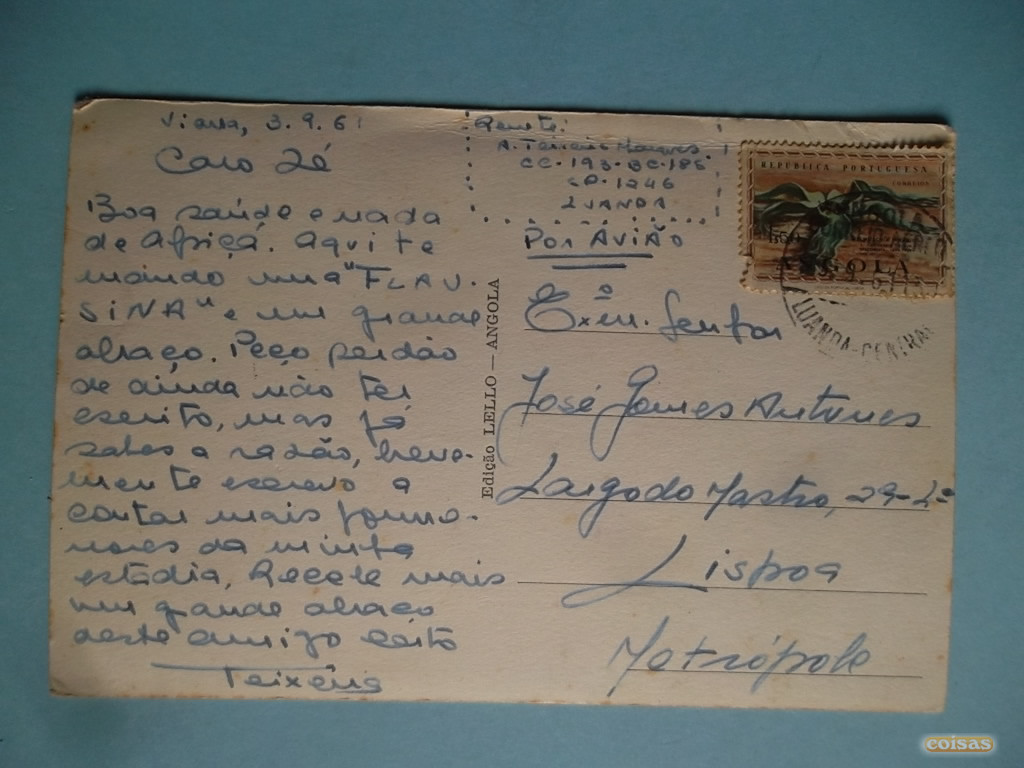 Viana, 3.9.61
Caro Zé
Boa saúde e nada
de Africa. Aqui te
mando uma "FLAU-
SINA" e um grande
abraço. Peço perdão
de ainda não ter
escrito, mas já
sabes a razão, breve-
mente escrevo a
contar mais pormo-
nores da minha
estadia, Recebe mais
um grande abraço
deste amigo certo
Teixeira
Remete:
A. Teixeira Marques
CC-193-BC-185
CP-1246
LUANDA
POR AVIÃO
Exmº. Senhor
José Gomes Antunes
Largo do Mastro, 29-2º
Lisboa
Metrópole
Edição LELLO — ANGOLA
REPÚBLICA PORTUGUESA
CORREIOS
ANGOLA
LUANDA-CENTRAL
coisas